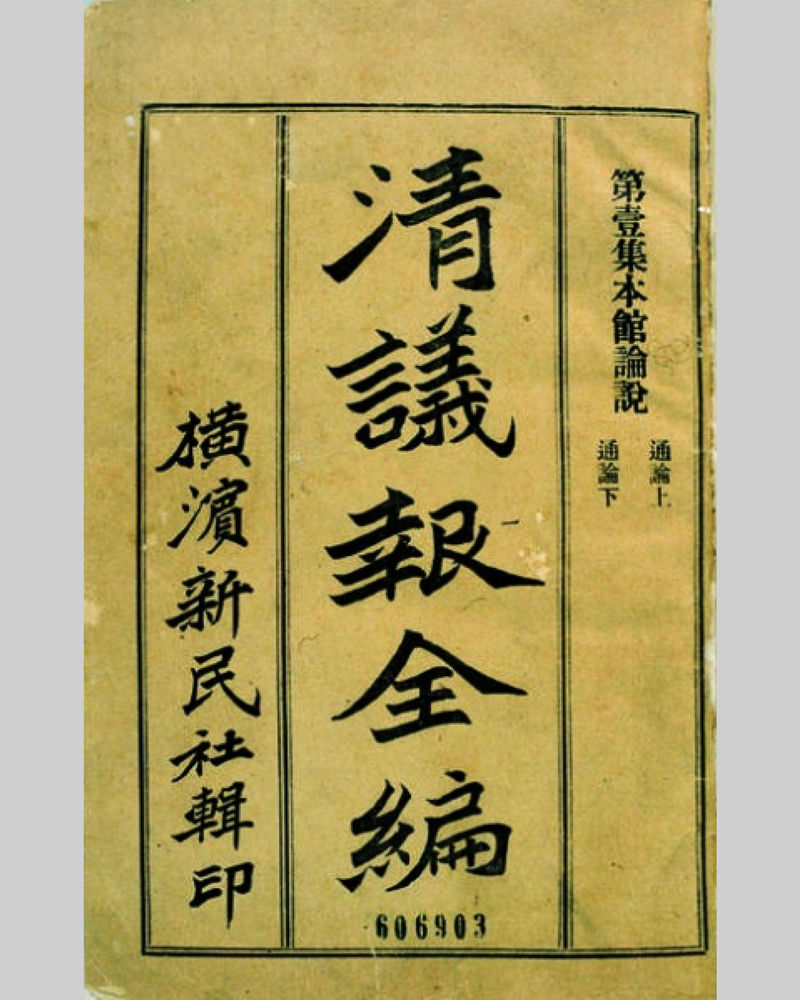 第壹集本館論說
通論上
通論下
清議報全編
606903
橫濱新民社輯印